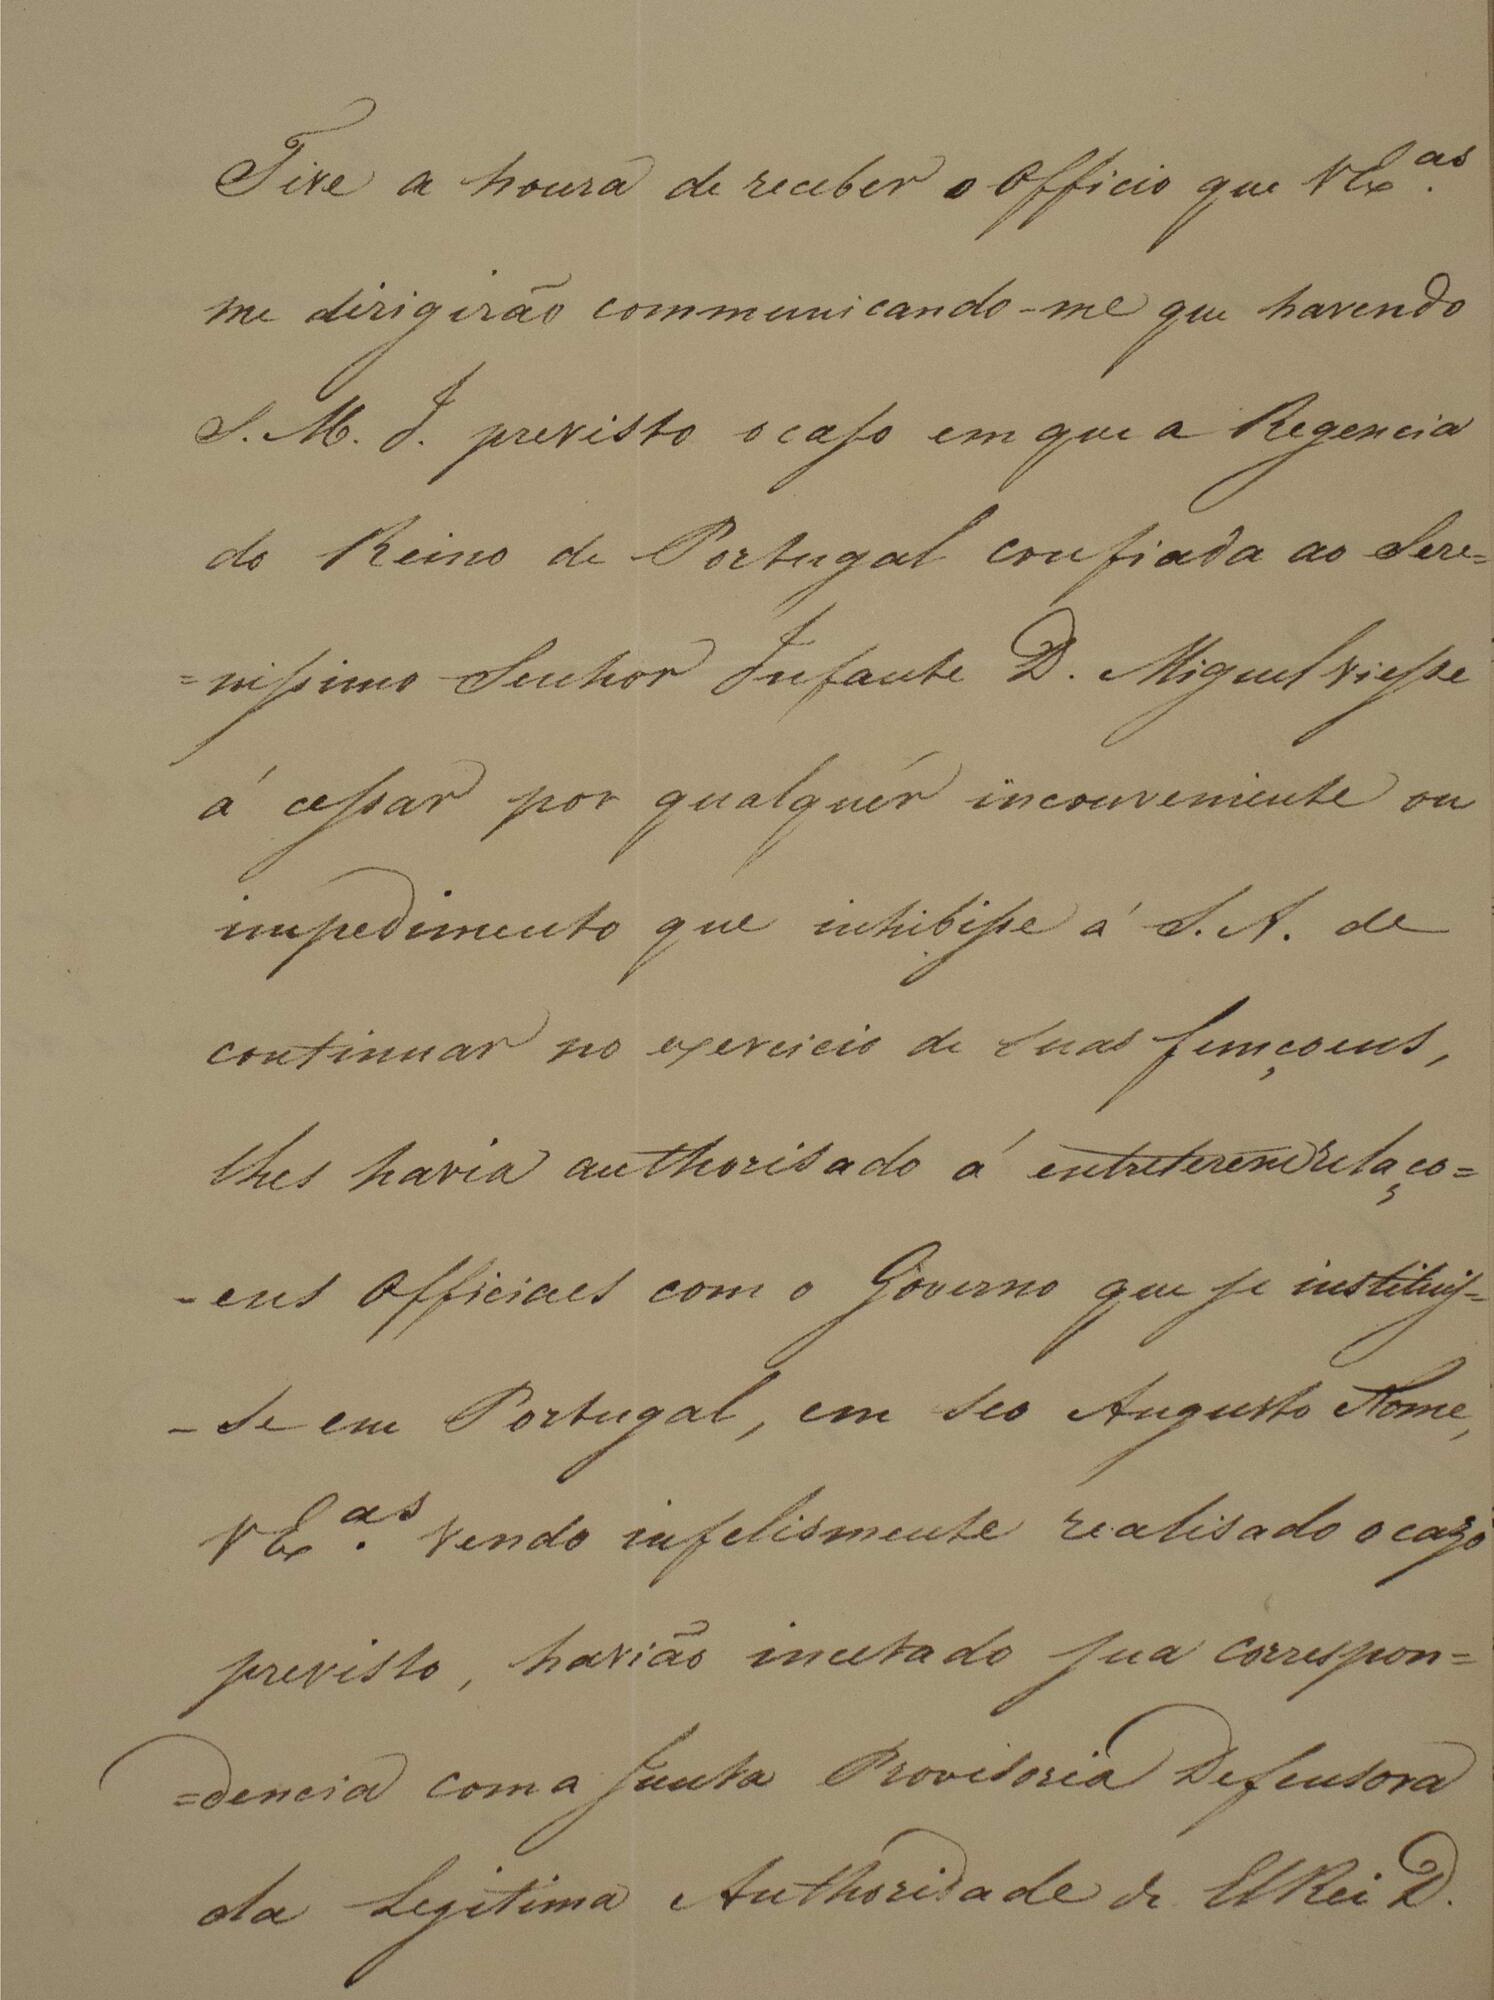 Tive a honra de receber o Officio que VEx.as
me dirigirão communicando-me que havendo
S. M. I. previsto o caso em que a Regencia
do Reino de Portugal confiada ao Sere=
=nissimo Senhor Infante D. Miguel viesse
á cessar por qualquér inconveniente ou
impedimento que inhibisse á S. A. de
continuar no exercicio de suas funçoens,
lhes havia authorisado á entreterem relaço=
-ens Officiaes com o Governo que se instituis-
-se em Portugal, em seo Augusto Nome,
VEx.as vendo infelismente realisado o cazo
previsto, havião incetado sua correspon=
=dencia com a Junta Provisoria Defensora
da Legitima Authoridade de ElRei D.